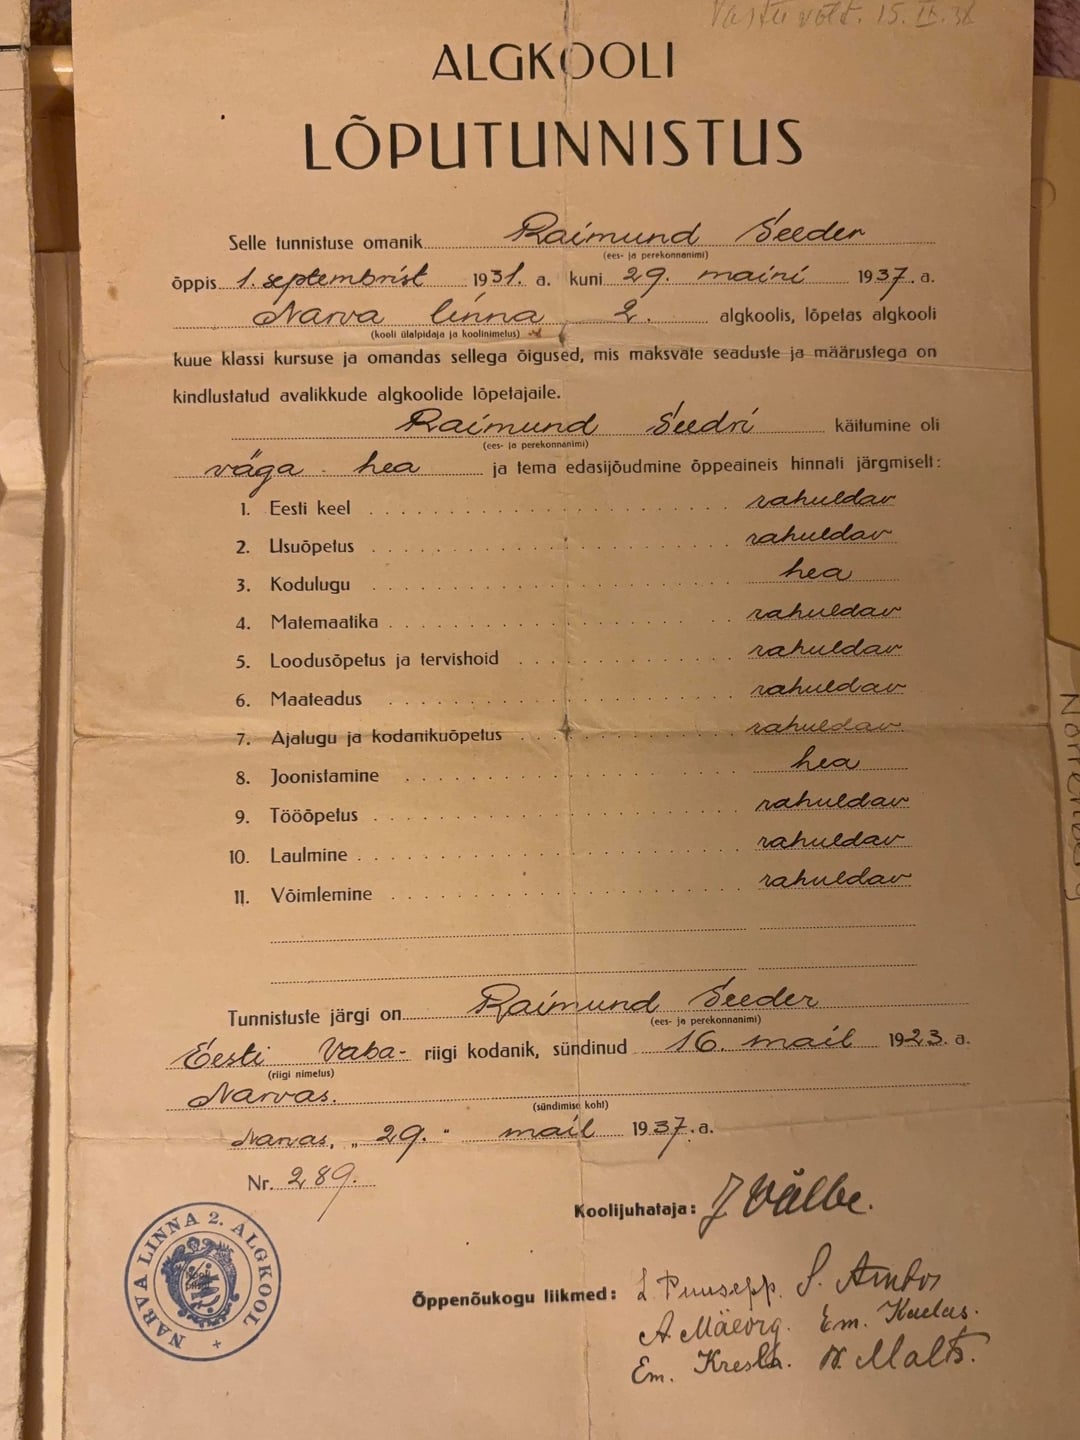 Vastu võet. 15. IX. 38
ALGKOOLI
LÕPUTUNNISTUS
Selle tunnistuse omanik Raimund Seeder
(ees- ja perekonnanimi)
õppis 1. septembrist 1931. a. kuni 29. maini 1937. a.
Narva linna 2. algkoolis, lõpetas algkooli
(kooli ülalpidaja ja koolinimetus)
kuue klassi kursuse ja omandas sellega õigused, mis maksvate seaduste ja määrustega on
kindlustatud avalikkude algkoolide lõpetajaile.
Raimund Seedri käitumine oli
(ees- ja perekonnanimi)
väga hea ja tema edasijõudmine õppeaineis hinnati järgmiselt:
1. Eesti keel rahuldav
2. Usuõpetus rahuldav
3. Kodulugu hea
4. Matemaatika rahuldav
5. Loodusõpetus ja tervishoid rahuldav
6. Maateadus rahuldav
7. Ajalugu ja kodanikuõpetus rahuldav
8. Joonistamine hea
9. Tööõpetus rahuldav
10. Laulmine rahuldav
11. Võimlemine rahuldav
Tunnistuste järgi on Raimund Seeder
(ees- ja perekonnanimi)
Eesti Vaba- riigi kodanik, sündinud 16. mail 1923. a.
(riigi nimetus)
Narvas.
(sündimise koht)
Narvas, „29." mail 1937. a.
Nr. 289.
Koolijuhataja: J Välbe.
Õppenõukogu liikmed: L. Puusepp. S.
A. Mäeorg. Em. Kadas.
Em. N. Malts.
NARVA LINNA 2. ALGKOOL
Nörrenberg